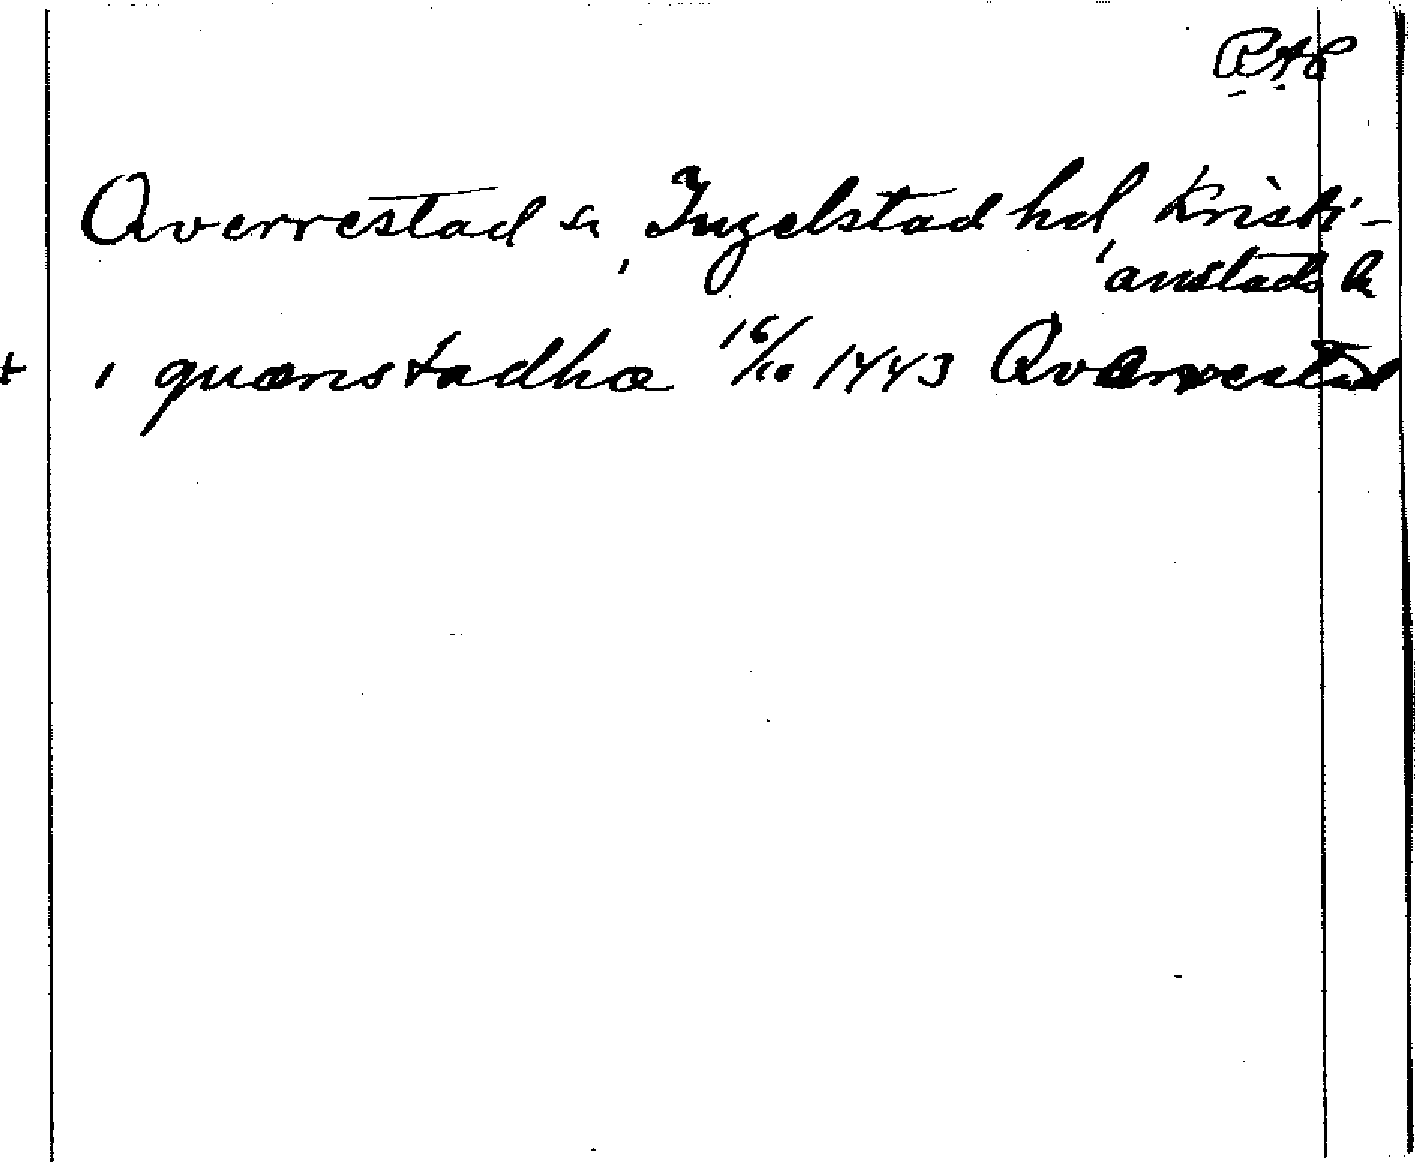 RAP
Qverrestad sn, Ingelstad hd, Kristi-
anstads ln
+ , quærstadhæ 16/10 1443 Qverrestad